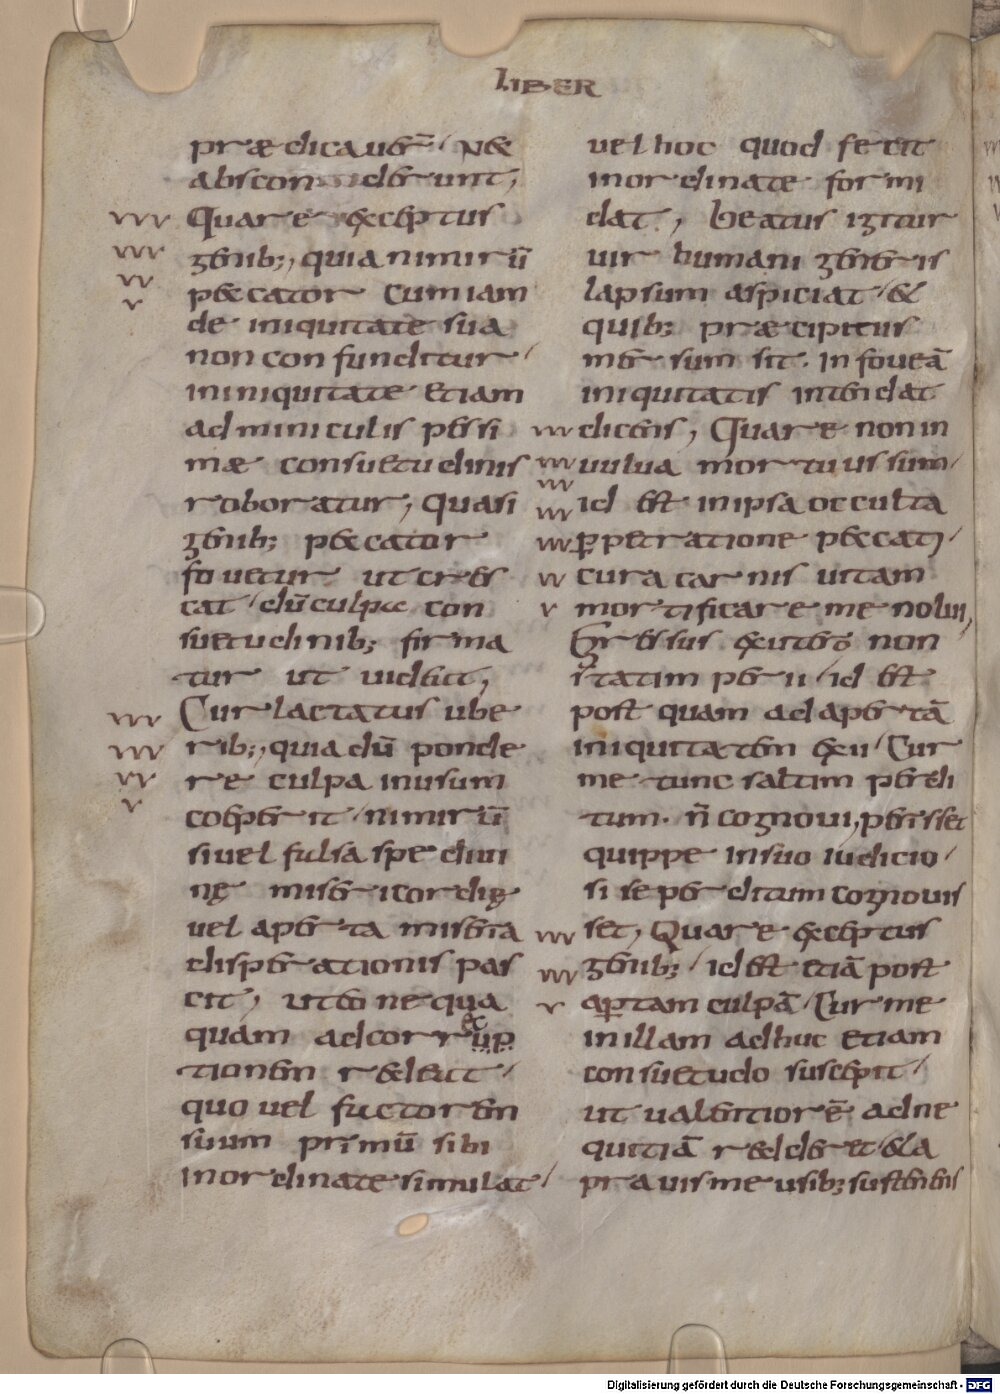 LIBER
prædicauer̄ / Nec
absconderunt;
Quare exceptus
genib;, quia nimirū
peccator cum iam
de iniquitate sua
non confunditur /
in iniquitate etiam
adminiculis pessi
mæ consuetudinis
roboratur; Quasi
genib; peccator
fouetur ut cres
cat / dū culpæ con
suetudinib; firma
tur ut uideat;
Cur lactatus ube
rib;, quia dū ponde
re culpa in usum
coeperit / nimirū
si uel fulsa spe diui
nę misericordię
uel aperta miseria
disperationis pas
cit; ut eo nequa
quam ad corrup
tionem redeat /
quo uel factorem
suum primū sibi
inordinate simulat /
uel hoc quod fecit
inordinate formi
dat; Beatus igitur
uir humani generis
lapsum aspiciat / et
quib; præcipitus
mer sum sit. In foueā
iniquitatis intendat
dicens; Quare non in
uulua mortuus sum /
id est in ipsa occulta
ꝑpetratione peccati /
cur a carnis uitam
mortificare me nolui;
Gressus ex utero non
statim perii / id est
post quam ad apertā
iniquitatem exii / Cur
me tunc saltim perdi
tum. n̄ cognoui, perisset
quippe in suo iudicio /
si se perditum cognouis
set; Quare exceptus
genib; / id est etiā post
aꝑtam culpā / Cur me
in illam adhuc etiam
consuetudo suscepit /
ut ualentiorē ad ne
quitiā redderet / et la
prauis me usib; sustentans
Digitalisierung gefördert durch die Deutsche Forschungsgemeinschaft - DFG